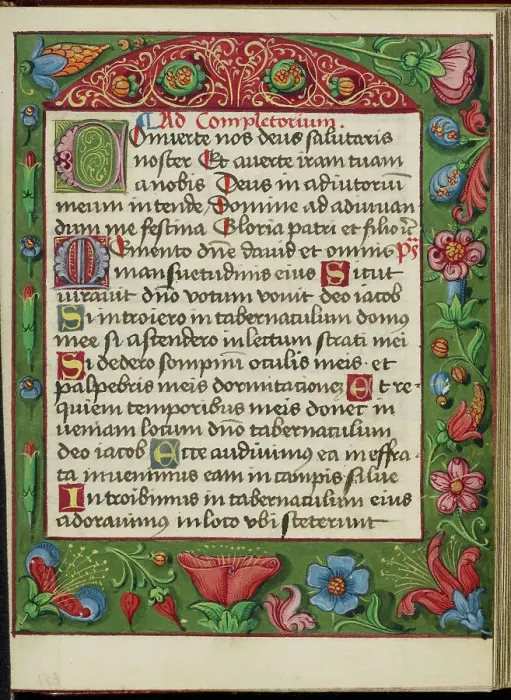 Ad Completorium.
Onuerte nos deus salutaris
noster Et auerte iram tuam
a nobis Deus in adiutoriu
meum intende Domine ad adiuuan
dum me festina Gloria patri et filio
Memento dne dauid et omnis ps
mansuetudinis eius Sicut
iurauit dno votum vouit deo iacob
Si introiero in tabernaculum domus
mee si ascendero in lectum strati mei
Si dedero sompnum oculis meis et
palpebris meis dormitationez Et re-
quiem temporibus meis donec in
ueniam locum dno tabernaculum
deo iacob Ecce audiuimus ea in effra-
ta inuenimus eam in campis silue
Introibimus in tabernaculum eius
adorauimus in loco vbi steterunt